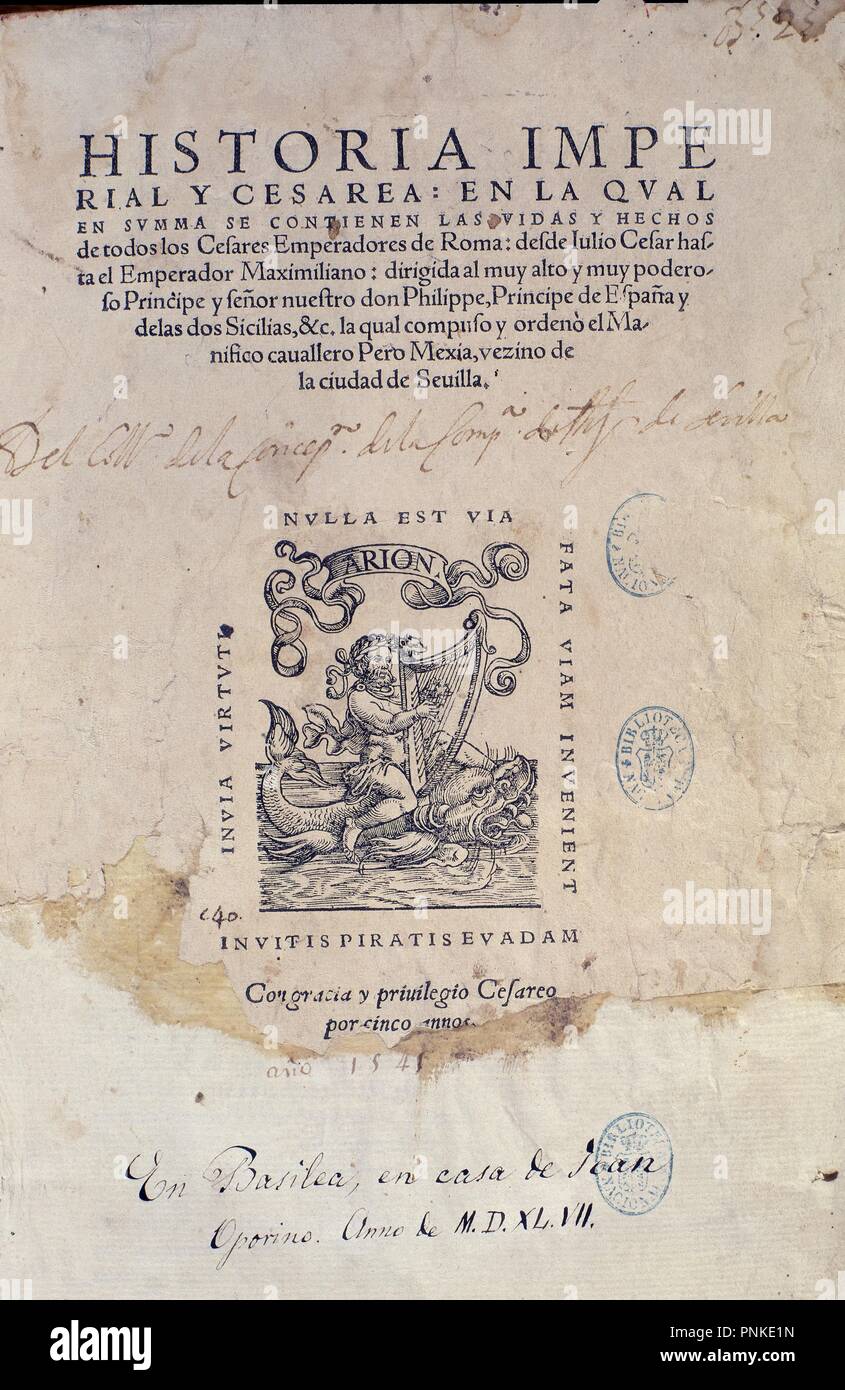 HISTORIA IMPE
RIAL Y CESAREA: EN LA QVAL
EN SVMMA SE CONTIENEN LAS VIDAS Y HECHOS
de todos los Cesares Emperadores de Roma: desde Iulio Cesar has-
ta el Emperador Maximiliano: dirigida al muy alto y muy podero-
so Principe y señor nuestro don Philippe, Principe de España y
delas dos Sicilias, &c. la qual compuso y ordenò el Ma-
nifico cauallero Pero Mexia, vezino de
la ciudad de Seuilla.
Del Coll.º de la Concepn. de la Compª. de de Sevilla
NVLLA EST VIA
ARION
FATA VIAM INVENIENT
INVIA VIRTVTI
INVITIS PIRATIS EVADAM
c40.
Con gracia y priuilegio Cesareo
por cinco annos.
año 154
En Basilea, en casa de Joan
Oporino. Anno de M.D.XL.VII.
BIBLIOTECA
BIBLIOTE NACIONAL
alamy
Image ID: PNKE1N
www.alamy.com